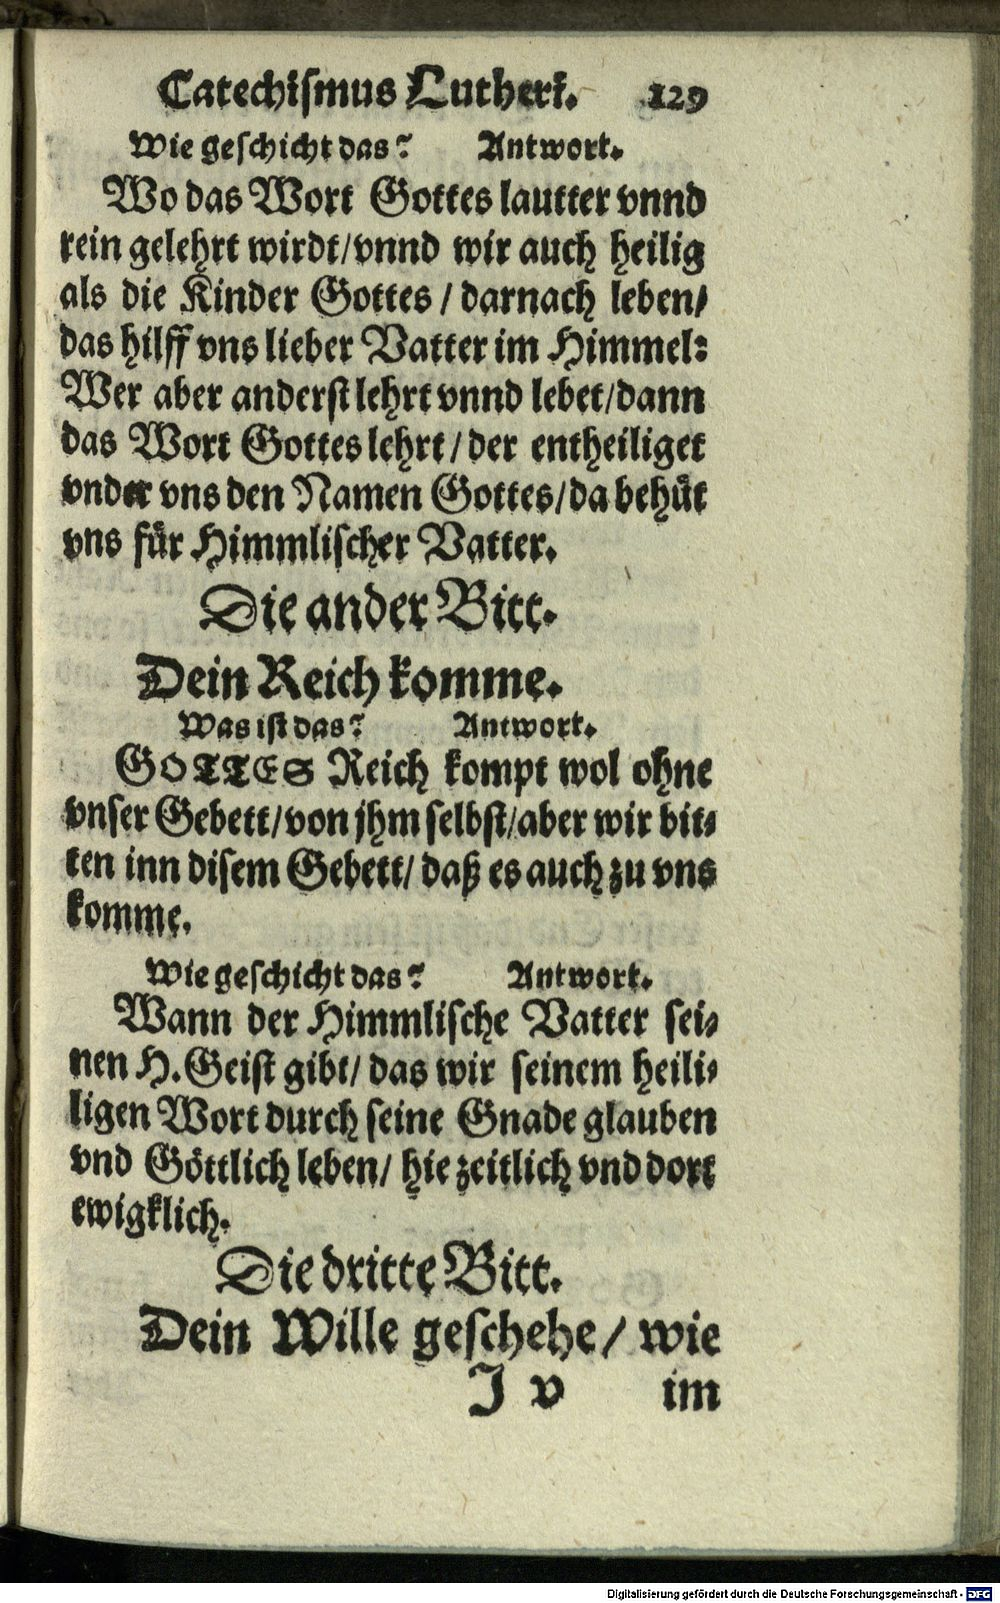 Catechismus Lutheri. 129
Wie geschicht das? Antwort.
Wo das Wort Gottes lautter vnnd
rein gelehrt wirdt/vnnd wir auch heilig
als die Kinder Gottes / darnach leben/
das hilff vns lieber Vatter im Himmel:
Wer aber anderst lehrt vnnd lebet/dann
das Wort Gottes lehrt / der entheiliget
vnder vns den Namen Gottes/da behüt
vns für Himmlischer Vatter.
Die ander Bitt.
Dein Reich komme.
Was ist das? Antwort.
GOTTES Reich kompt wol ohne
vnser Gebett/von jhm selbst/aber wir bit-
ten inn disem Gebett/ daß es auch zu vns
komme.
Wie geschicht das? Antwort.
Wann der Himmlische Vatter sei-
nen H. Geist gibt/ das wir seinem heili-
ligen Wort durch seine Gnade glauben
vnd Göttlich leben/ hie zeitlich vnd dort
ewigklich.
Die dritte Bitt.
Dein Wille geschehe / wie
J v im
Digitalisierung gefördert durch die Deutsche Forschungsgemeinschaft - DFG